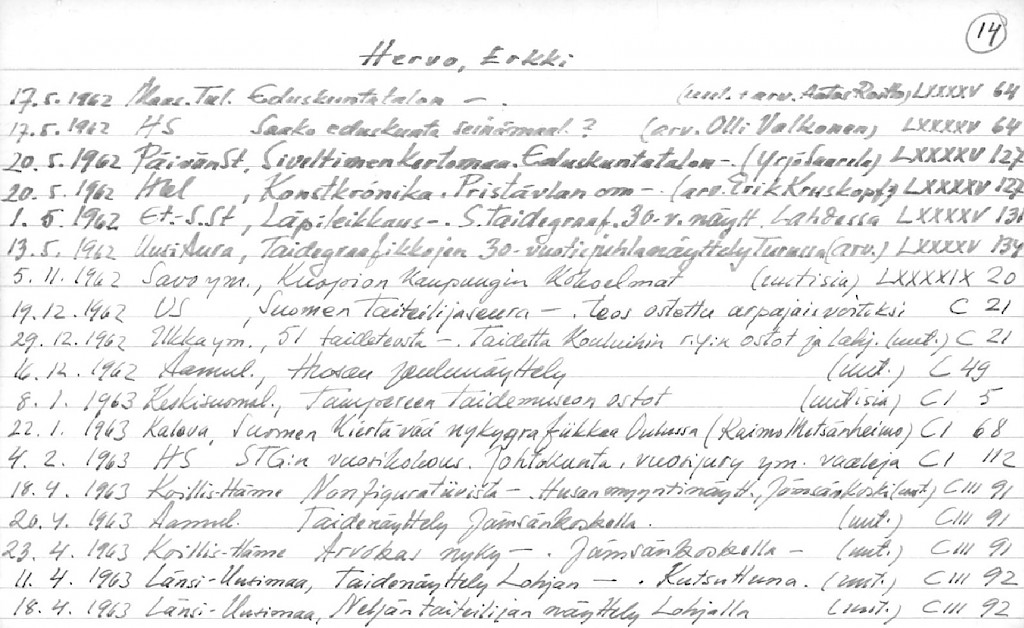 14
Hervo, Erkki
17.5.1962 Maas. Tul. Eduskuntatalon — . (uut. + arv. ) LXXXXV 64
17.5.1962 HS Saako eduskunta seinämaal.? (arv. Olli Valkonen) LXXXXV 64
20.5.1962 PäivänSt, Siveltimen kertomaa. Eduskuntatalon -. (Yrjö Saarela) LXXXXV 127
20.5.1962 Hbl , Konstkrónika. Pristävlan om -. (arv. Erik Kruskopf) LXXXXV 127
1.5.1962 Et.-S.St, Läpileikkaus -. S. taidegraaf. 30-v. näytt. Lahdessa LXXXXV 131
13.5.1962 Uusi Aura, Taidegraafikkojen 30-vuotisjuhlanäyttely Turussa (arv.) LXXXXV 134
5.11.1962 Savo ym., Kuopion kaupungin kokoelmat (uutisia) LXXXXIX 20
19.12.1962 US , Suomen taiteilijaseura — . teos ostettu arpajaisvoitoksi C 21
29.12.1962 Ukka ym., 51 taideteosta -. Taidetta Kouluihin r.y:n ostot ja lahj. (uut.) C 21
16.12.1962 Aamul., Husan joulunäyttely (uut.) C 49
8.1.1963 Keskisuomal., Tampereen taidemuseon ostot (uutisia) CI 5
22.1.1963 Kaleva, Suomen kiertävää nykygrafiikkaa Oulussa (Kaimo Metsänheimo) CI 68
4.2.1963 HS STG:n vuosikokous. Johtokunta, vuosijury ym. vaaleja CI 112
18.4.1963 Koillis-Häme Nonfiguratiivista -. Husan myyntinäytt., Jämsänkoski (uut.) CIII 91
20.4.1963 Aamul. Taidenäyttely Jämsänkoskella. (uut.) CIII 91
23.4.1963 Koillis-Häme Arvokas nyky -. Jämsänkoskella - (uut.) CIII 91
11.4.1963 Länsi-Uusimaa, Taidenäyttely Lohjan — . Kutsuttuna. (uut.) CIII 92
18.4.1963 Länsi-Uusimaa, Neljän taiteilijan näyttely Lohjalla (uut.) CIII 92